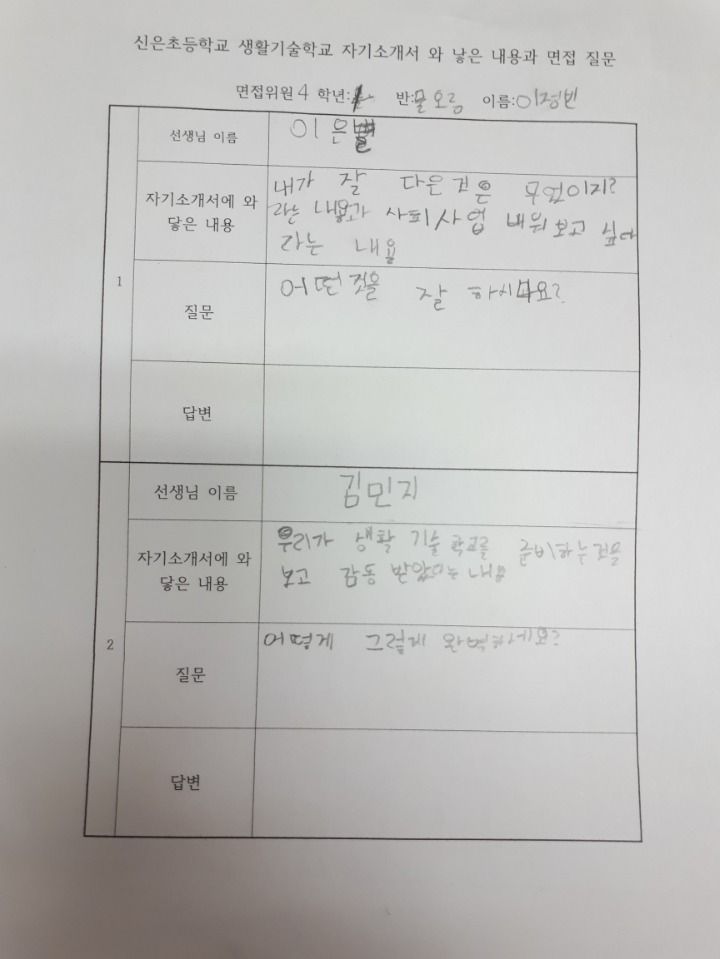 신은초등학교 생활기술학교 자기소개서 와 낳은 내용과 면접 질문
면접위원 4 학년: 반:물오름 이름:이정빈
1
선생님 이름
이은별
자기소개서에 와
닿은 내용
내가 잘 다은것은 무엇이지?
라는 내용과 사회사업 배워보고 싶다
라는 내용
질문
어떤것을 잘 하시나요?
답변
2
선생님 이름
김민지
자기소개서에 와
닿은 내용
우리가 생활 기술 학교를 준비하는것을
보고 감동 받았다는 내용
질문
어떻게 그렇게 완벽하세요?
답변